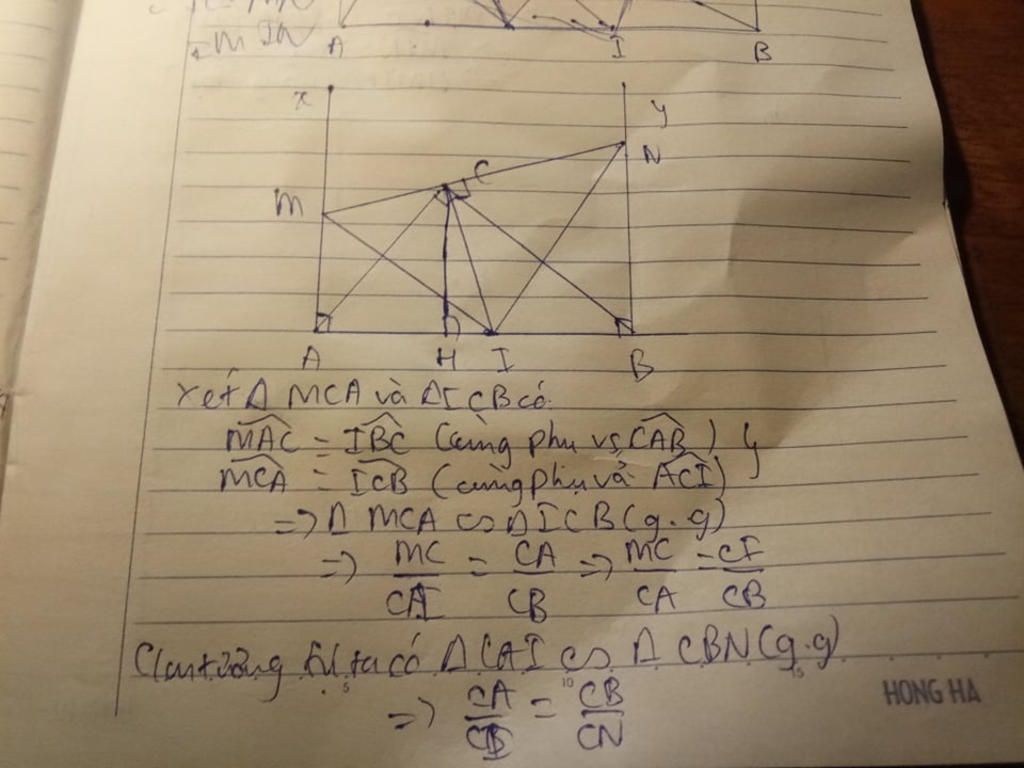 A I B
x y
C N
M
A H I B
Xét Δ MCA và ΔICB có
MAC = IBC (cùng phụ vs CAB)
MCA = ICB (cùng phụ và ACI)
=> Δ MCA ∽ Δ ICB (g.g)
=> MC/CI = CA/CB => MC/CA = CI/CB
C/m tương tự ta có Δ CAI ∽ Δ CBN (g.g)
=> CA/CI = CB/CN
5 10 15
HONG HA